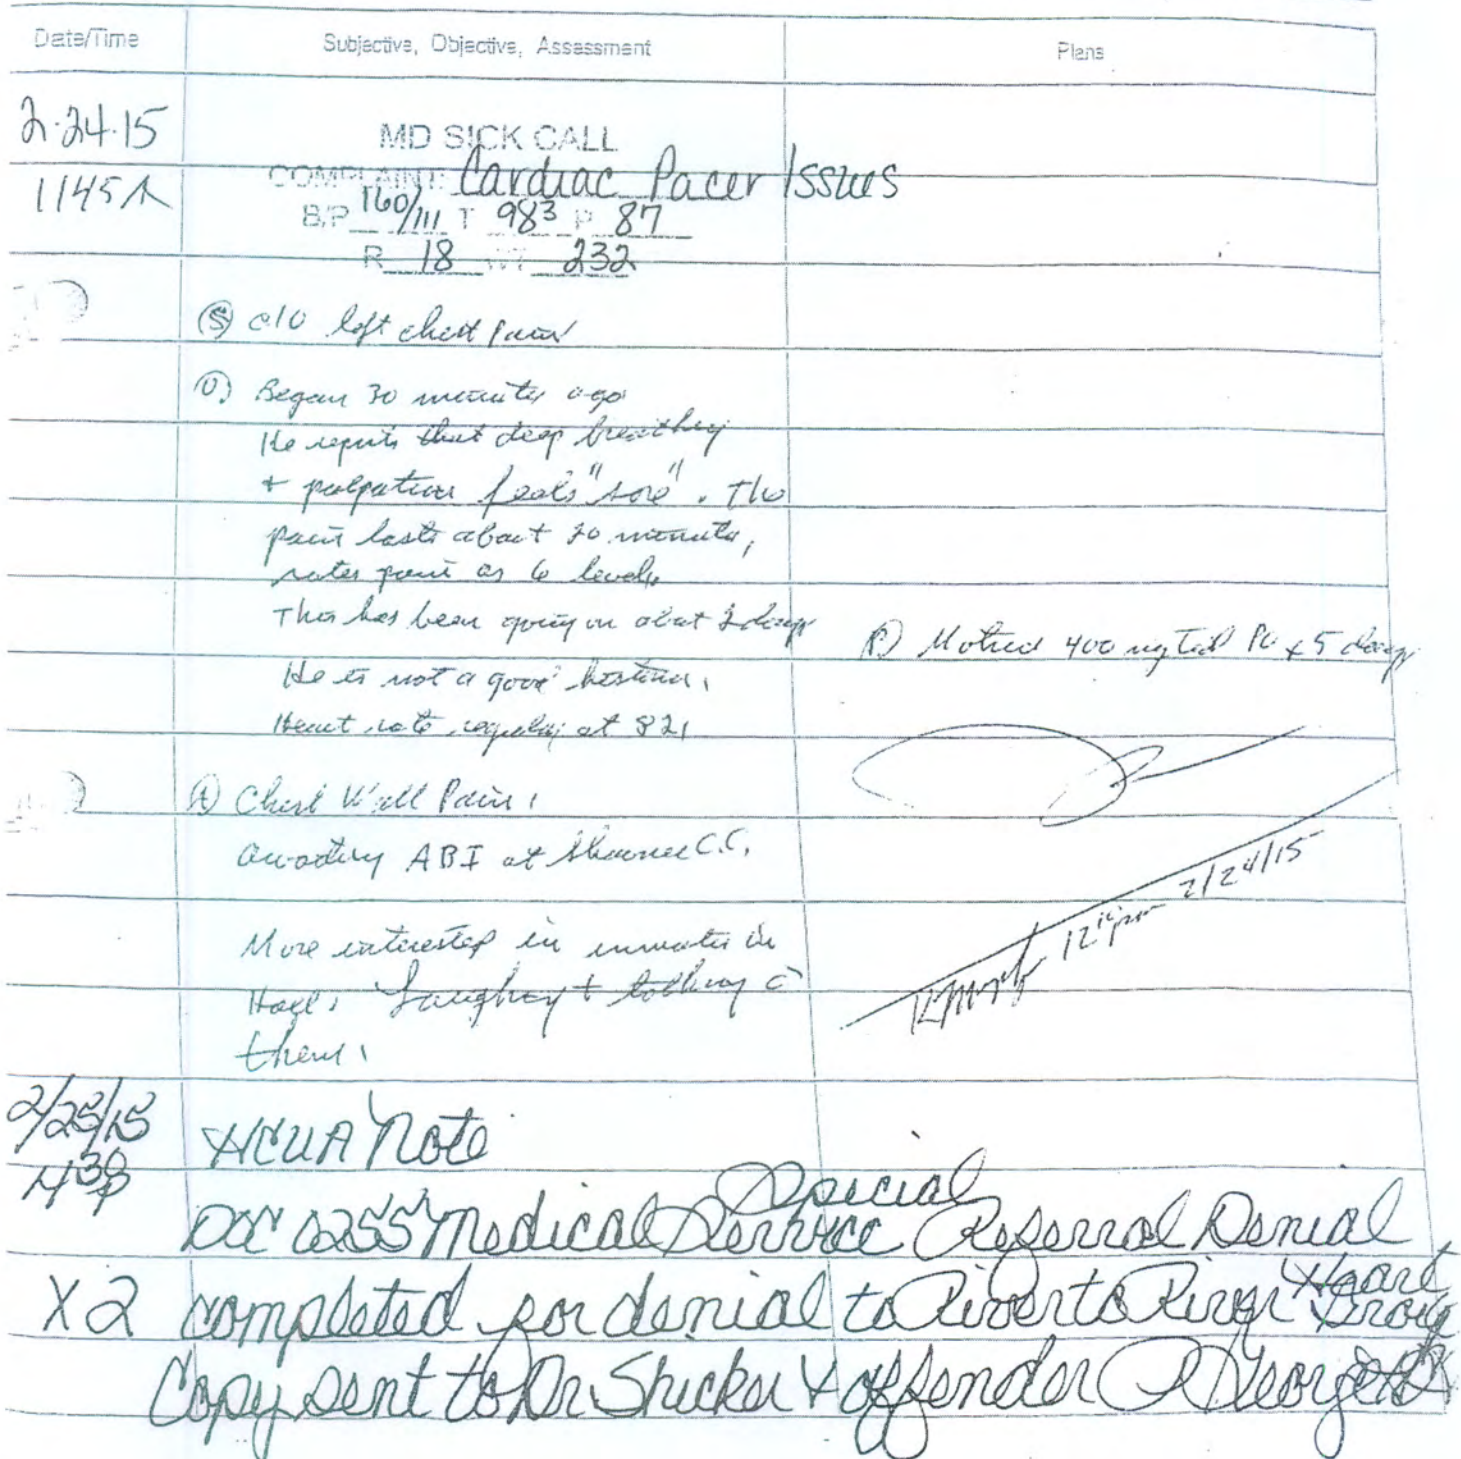 Date/Time Subjective, Objective, Assessment Plans
2·24·15 MD SICK CALL
COMPLAINT: Cardiac Pacer Issues
1145A B/P 160/111 T 98³ P 87
R 18 WT 232
(S) c/o left chest pain
(O) Began 30 minutes ago
He reports that deep breathing
+ palpation feels "sore". The
pain lasts about 30 minutes,
rates pain as 6 level.
This has been going on about 2 days
(P) Motrin 400 mg tid PO x 5 days
He is not a good historian.
Heart rate regular at 82.
(A) Chest Wall Pain.
Awaiting ABI at Shawnee C.C.
2/24/15
More interested in inmates in
Hall. Laughing + talking c̄
them.
2/25/15 HCUA Note
4³⁰p
Special
DOC 0255 Medical Service Referral Denial
X2 completed for denial to River to River Heart Group
Copy sent to Dr Shicker & offender